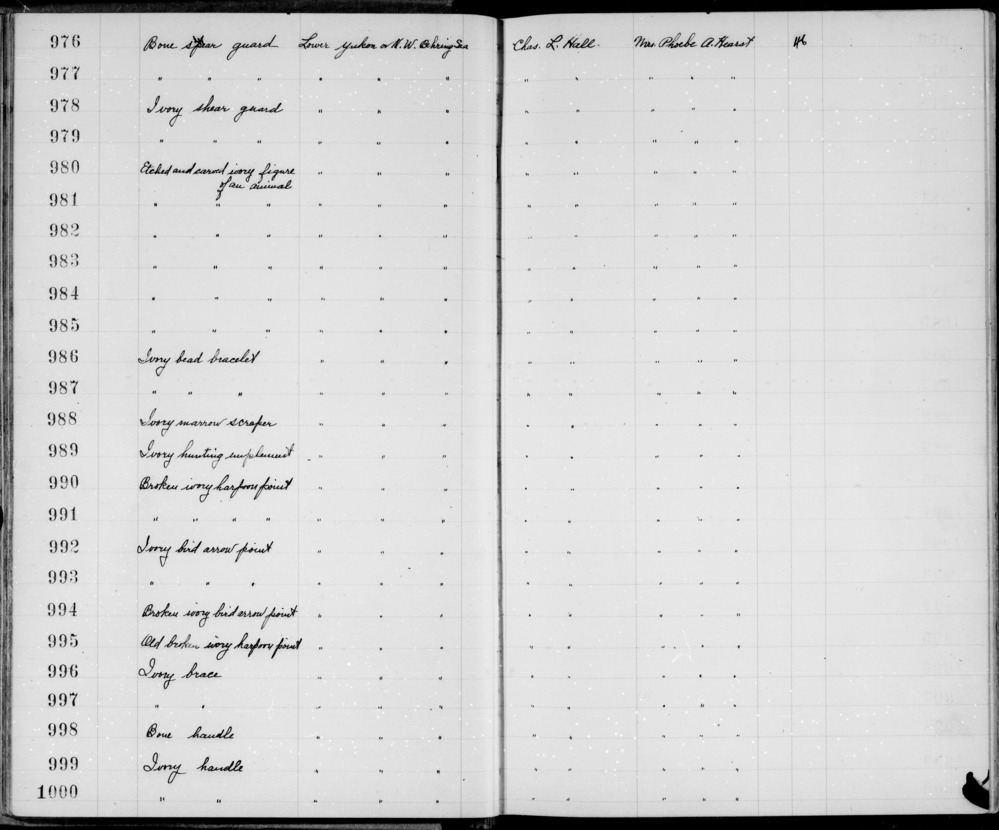 976 Bone spear guard Lower Yukon or N.W. Behring Sea Chas. L. Hall. Mrs. Phoebe A. Hearst 46
977 " " " " " " " " " " "
978 Ivory shear guard " " " " " " " "
979 " " " " " " " " " " "
980 Etched and carved ivory figure " " " " " " " "
of an animal
981 " " " " " " " " " " "
982 " " " " " " " " " " "
983 " " " " " " " " " " "
984 " " " " " " " " " " "
985 " " " " " " " " " " "
986 Ivory bead bracelet " " " " " " " "
987 " " " " " " " " " " "
988 Ivory marrow scraper " " " " " " " "
989 Ivory hunting implement " " " " " " " "
990 Broken ivory harpoon point " " " " " " " "
991 " " " " " " " " " " " "
992 Ivory bird arrow point " " " " " " " "
993 " " " " " " " " " " "
994 Broken ivory bird arrow point " " " " " " " "
995 Old broken ivory harpoon point " " " " " " " "
996 Ivory brace " " " " " " " "
997 " " " " " " " " " "
998 Bone handle " " " " " " " "
999 Ivory handle " " " " " " " "
1000 " " " " " " " " " "